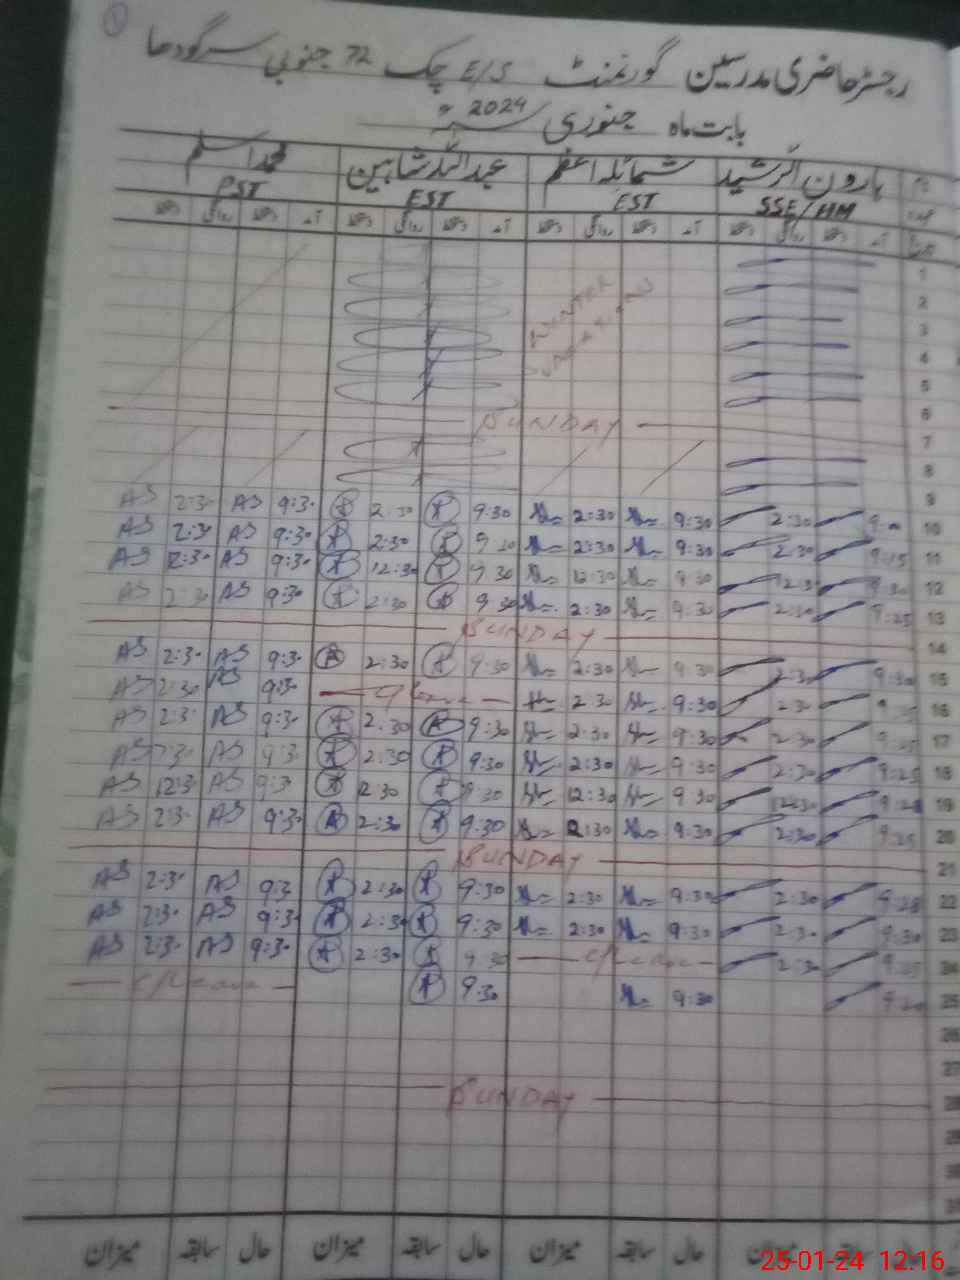 رجسٹر حاضری مدرسین گورنمنٹ E/S چک 72 جنوبی سرگودھا
بابت ماہ جنوری سنہ 2024
ہارون الرشید شمائلہ اعظم عبداللہ شاہین محمد اسلم
SSE/HM EST EST PST
1
2
3
4
5
6
WINTER
VACATIONS
SUNDAY 7
8
9
AS 2:30 AS 9:30 2:30 9:30 2:30 9:30 2:30 10
AS 2:30 AS 9:30 2:30 9:30 2:30 9:30 2:30 9:15 11
AS 12:30 AS 9:30 12:30 9:30 12:30 9:30 12:30 9:30 12
AS 2:30 AS 9:30 2:30 9:30 2:30 9:30 2:30 9:25 13
SUNDAY 14
AS 2:30 AS 9:30 2:30 9:30 2:30 9:30 2:30 9:30 15
AS 2:30 AS 9:30 C/Leave 2:30 9:30 2:30 16
AS 2:30 AS 9:30 2:30 9:30 2:30 9:30 2:30 9:25 17
AS 2:30 AS 9:30 2:30 9:30 2:30 9:30 2:30 9:25 18
AS 12:30 AS 9:30 12:30 9:30 12:30 9:30 12:30 19
AS 2:30 AS 9:30 2:30 9:30 2:30 9:30 2:30 9:25 20
SUNDAY 21
AS 2:30 AS 9:30 2:30 9:30 2:30 9:30 2:30 22
AS 2:30 AS 9:30 2:30 9:30 2:30 9:30 2:30 9:30 23
AS 2:30 AS 9:30 2:30 9:30 C/Leave 2:30 24
C/Leave 9:30 9:30 9:20 25
26
27
SUNDAY 28
30
31
حال سابقہ میزان حال سابقہ میزان حال سابقہ میزان
25-01-24 12:16